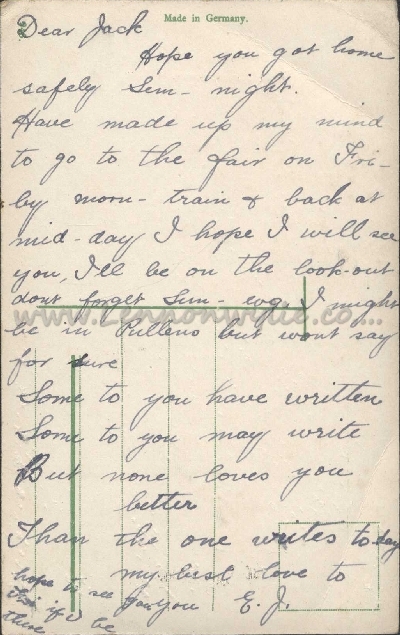 Made in Germany.
Dear Jack
Hope you got home
safely Sun- night.
Have made up my mind
to go to the fair on Fri-
by morn- train & back at
mid-day I hope I will see
you, I'll be on the look-out
dont forget Sun- evg. I might
be in Pullens but wont say
for sure
Some to you have written
Some to you may write
But none loves you
better
Than the one writes today
my best love to
you E. J.
hope to see
Fri if I'd be
there